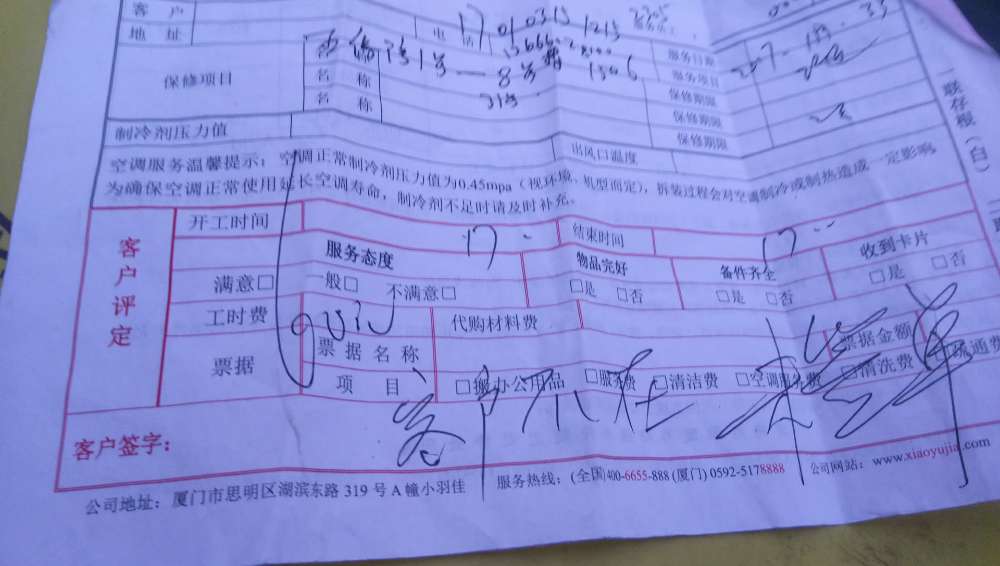 客 户 电 话 17010315 1215
地 址 服务日期
保修项目 名 称 服务项目
名 称 保修期限
名 称 保修期限
保修期限
制冷剂压力值 出风口温度
空调服务温馨提示：空调正常制冷剂压力值为0.45mpa（视环境、机型而定），拆装过程会对空调制冷或制热造成一定影响，
为确保空调正常使用延长空调寿命，制冷剂不足时请及时补充。
联存根（白）
客户评定
开工时间 17 结束时间 17
服务态度 物品完好 备件齐全 收到卡片
满意□ 一般□ 不满意□ □是 □否 □是 □否 □是 □否
工时费 90元 代购材料费
票据 票据名称 票据金额
项 目 □搬办公用品 □服务费 □清洁费 □空调服务费 □清洗费 疏通费
客户签字： 客户不在
公司地址：厦门市思明区湖滨东路 319 号 A 幢小羽佳 服务热线：(全国)400-6655-888 (厦门) 0592-5178888 公司网站：www.xiaoyujia.com